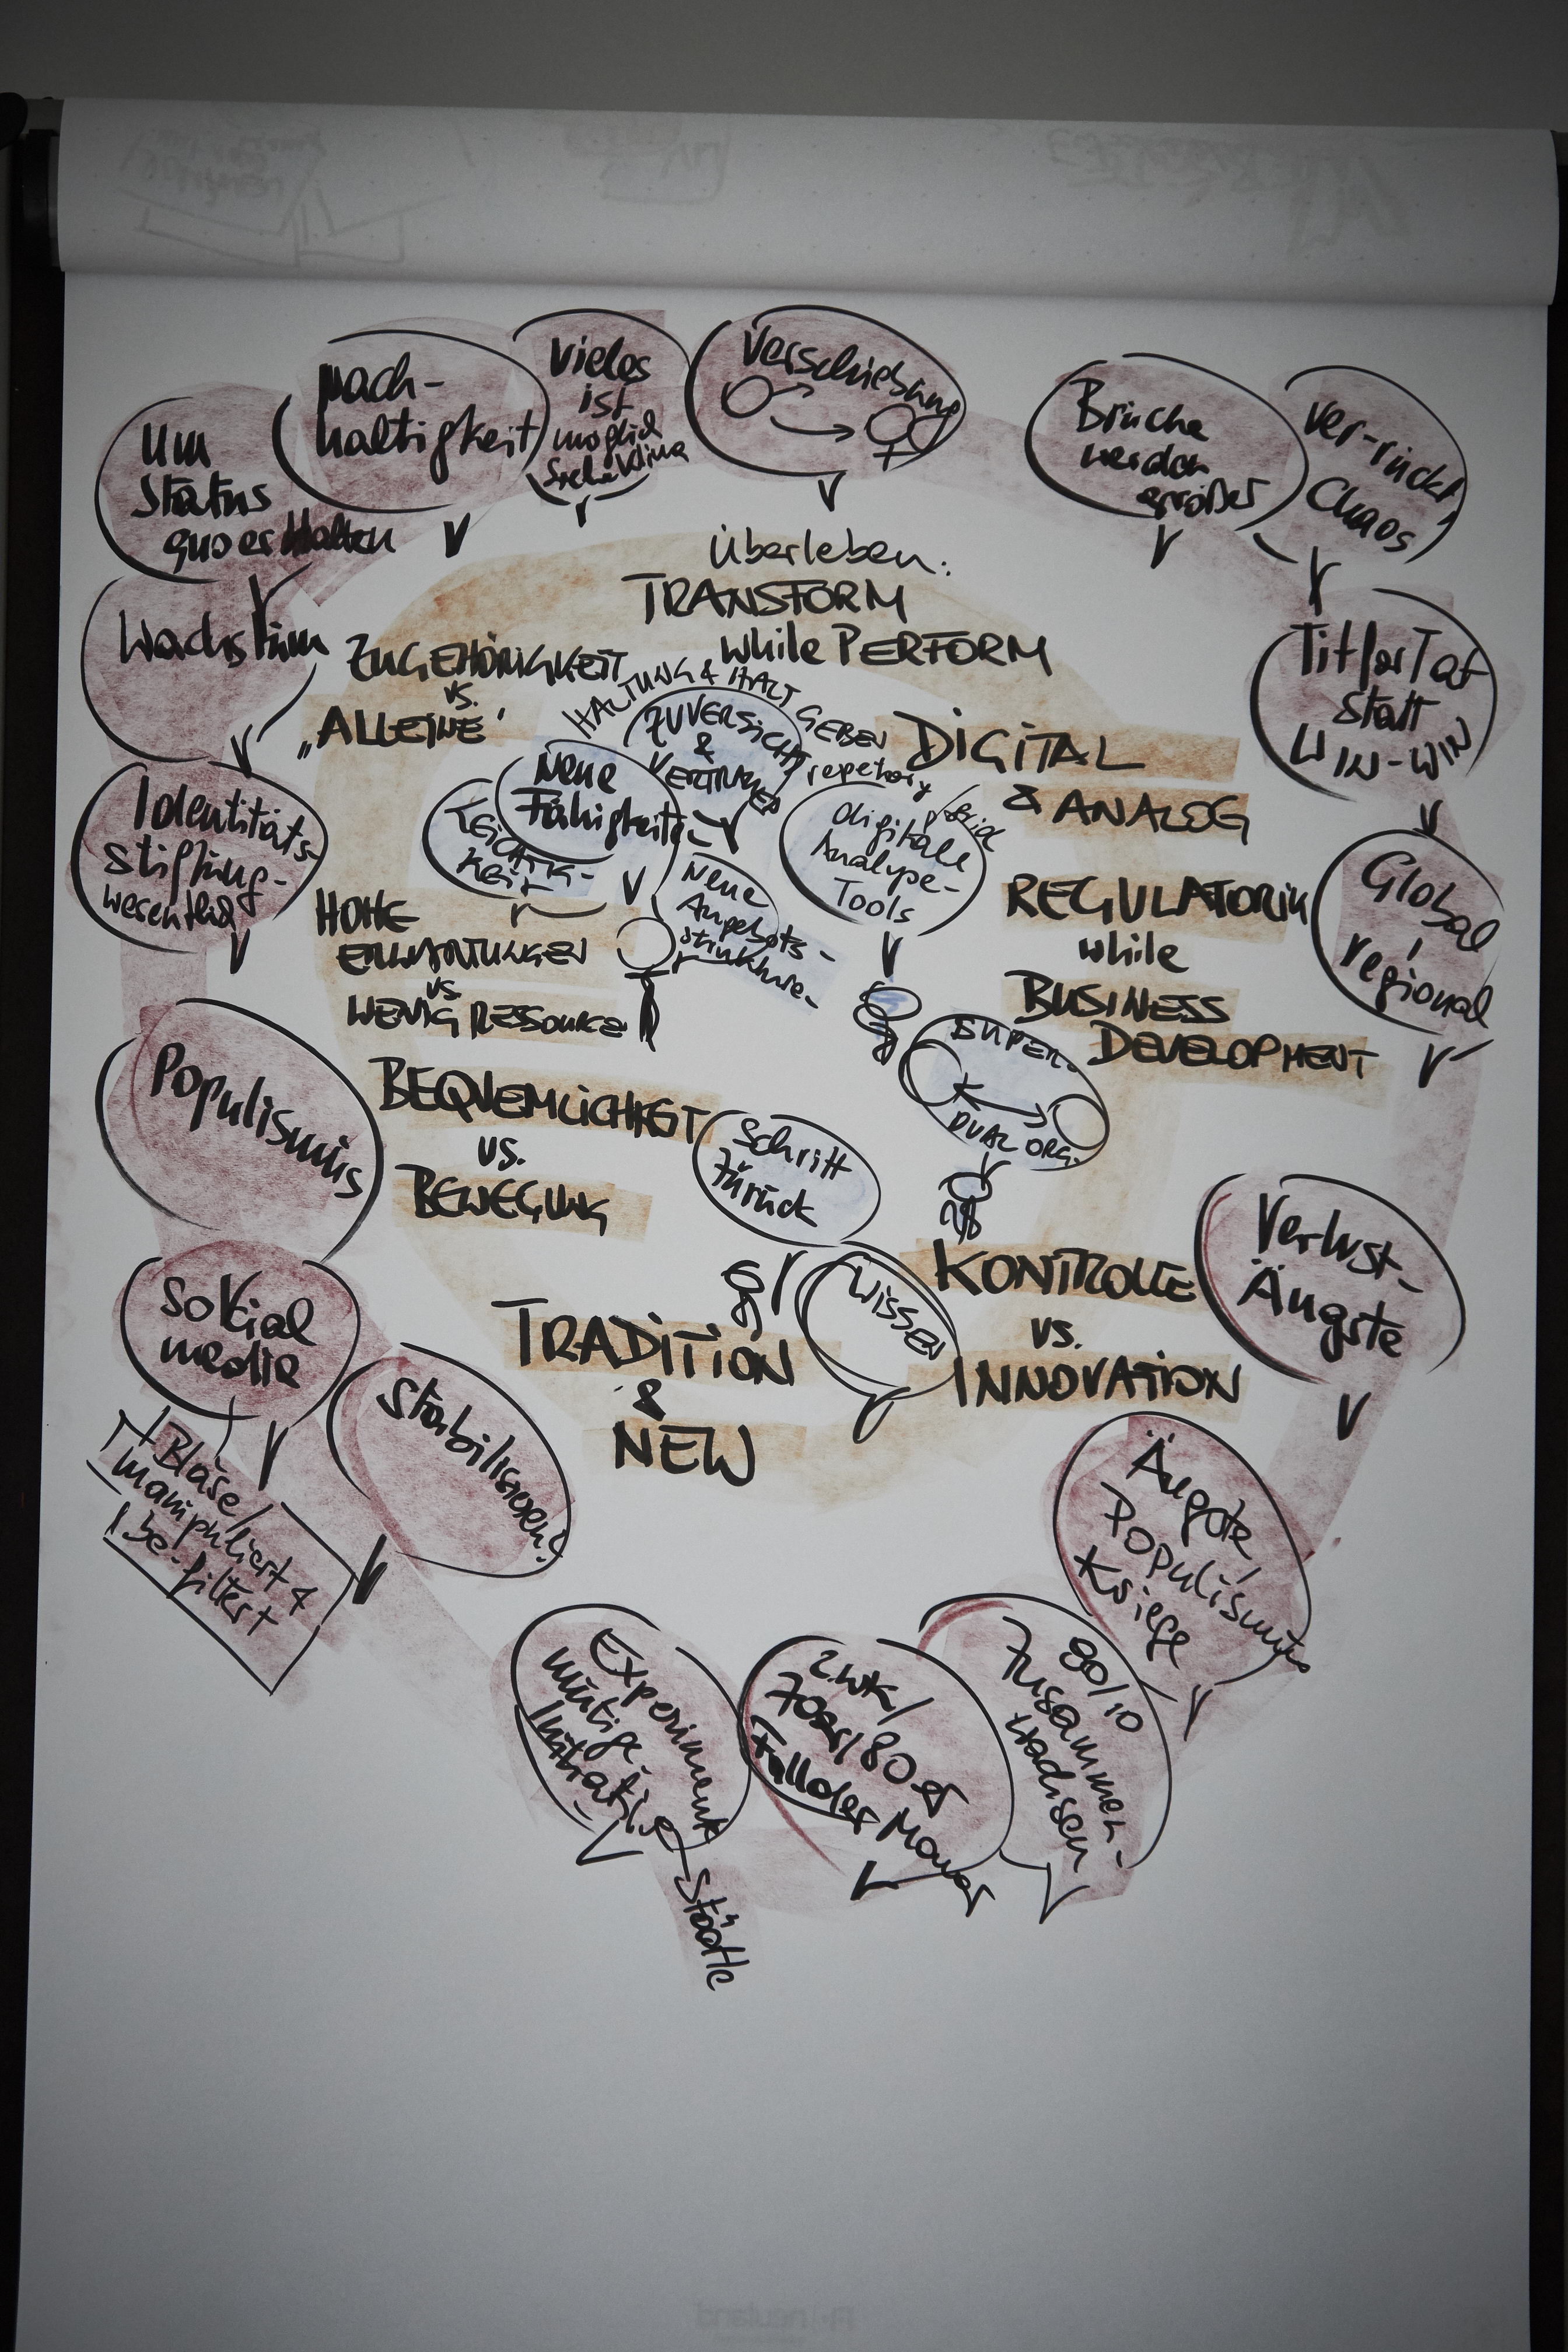 Um
Status
quo erhalten
nach-
haltigkeit
Vieles
ist
möglich
siehe Klima
Verschiebung
Brüche
werden
größer
Ver-rückt,
Chaos
Überleben:
TRANSFORM
while PERFORM
Wachstum
ZUGEHÖRIGKEIT
vs.
„ALLEINE'
HALTUNG & HALT GEBEN
ZUVERSICHT
&
VERTRAUEN
DIGITAL
& ANALOG
Tit for Tat
statt
WIN-WIN
Identitäts-
stiftung-
wesentlich
Neue
Fähigkeiten
LEICHTIG-
KEIT
Neue
Angebots-
digitale
Analyse-
Tools
HOHE
ERWARTUNGEN
vs.
WENIG RESSOURCEN
REGULATORIK
while
BUSINESS
DEVELOPMENT
Global
/
regional
Populismus
BEQUEMLICHKEIT
vs.
BEWEGUNG
Schritt
zurück
SUPER-
DUAL ORG.
Sozial
media
Blase/
manipuliert &
be-filtert
Stabilisieren?
TRADITION
&
NEW
WISSEN
KONTROLLE
vs.
INNOVATION
Verlust-
Ängste
Ängste,
Populismus
Kriege
Experiment
mutige
Initiative
Städte
2.WK/
70er/80er
Fall der Mauer
Zusammen-